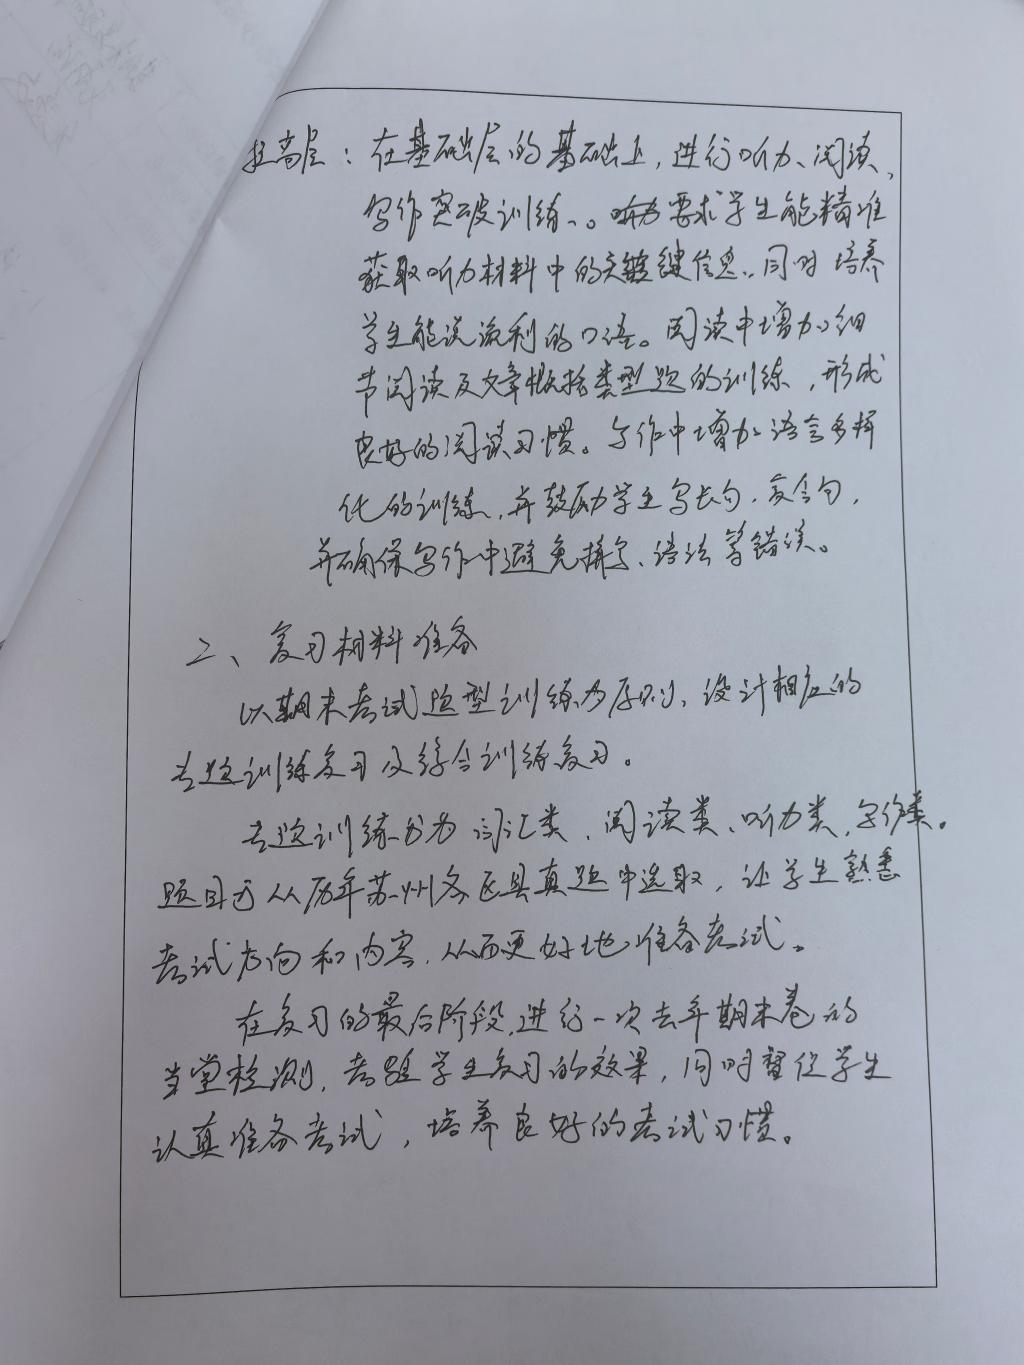 提高层：在基础层的基础上，进行听力、阅读、
写作突破训练。听力要求学生能精准
获取听力材料中的关键信息，同时培养
学生能说流利的口语。阅读中增加细
节阅读及文章概括类型题的训练，形成
良好的阅读习惯。写作中增加语言多样
化的训练，并鼓励学生写长句，复合句，
并确保写作中避免拼写、语法等错误。
二、复习材料准备
以期末考试题型训练为原则，设计相应的
专题训练复习及综合训练复习。
专题训练分为词汇类、阅读类、听力类，写作类。
题目可从历年苏州各区县真题中选取，让学生熟悉
考试方向和内容，从而更好地准备考试。
在复习的最后阶段，进行一次去年期末卷的
当堂检测，考验学生复习的效果，同时督促学生
认真准备考试，培养良好的考试习惯。